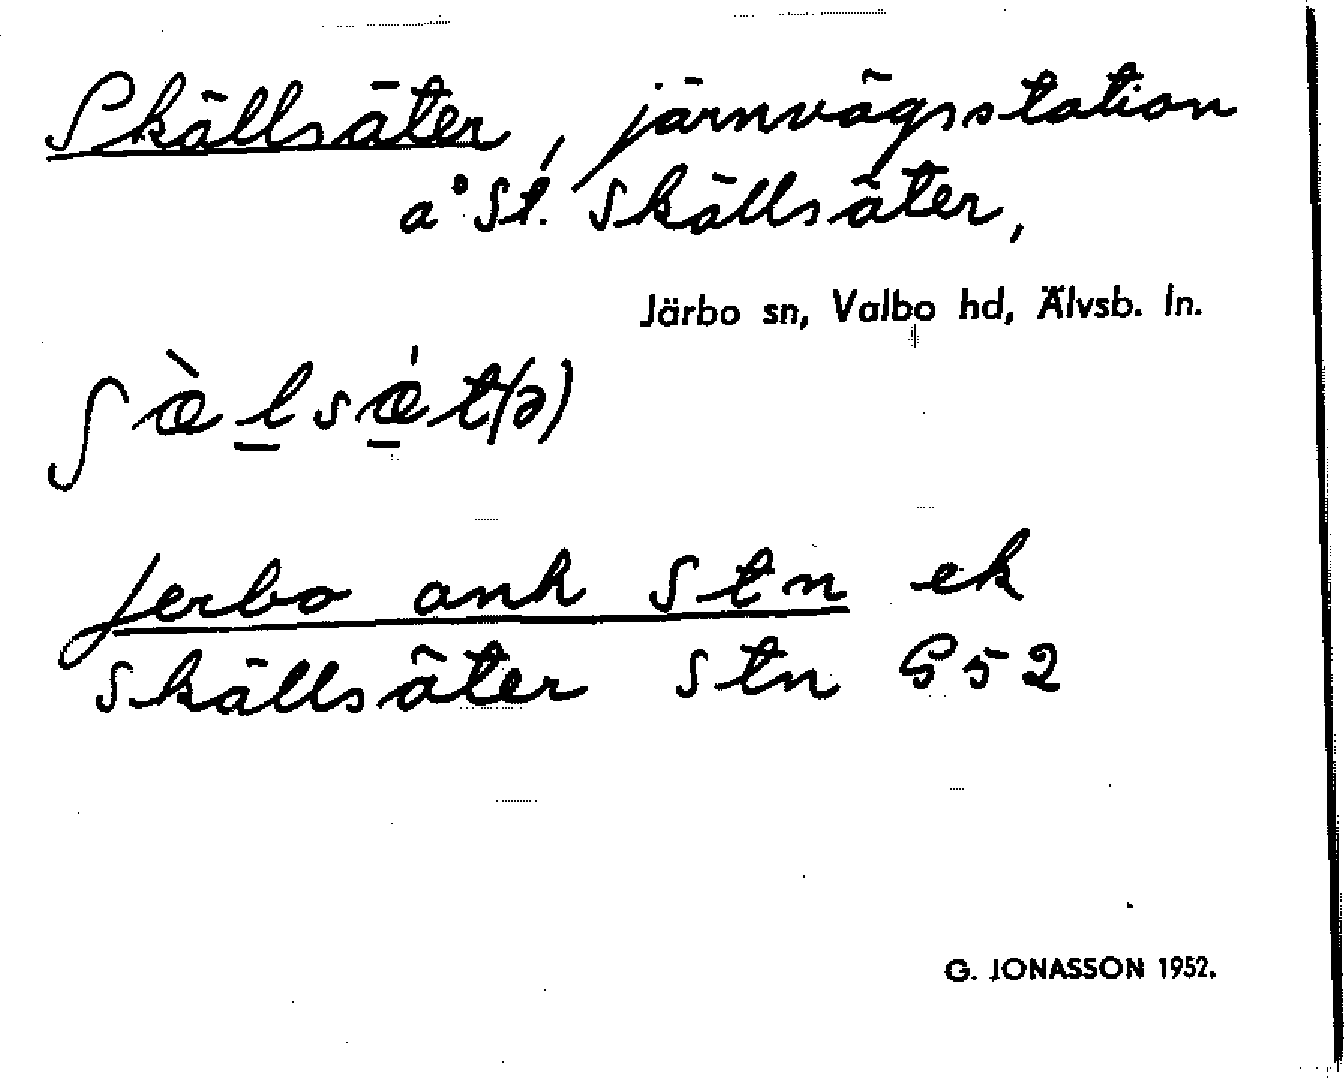 Skällsäter, järnvägsstation
å St. Skällsäter,
Järbo sn, Valbo hd, Älvsb. ln.
ʃæ̀l̲sǽ̲t(ə)
Jerbo anh Stn ek
Skällsäter Stn G52
G. JONASSON 1952.